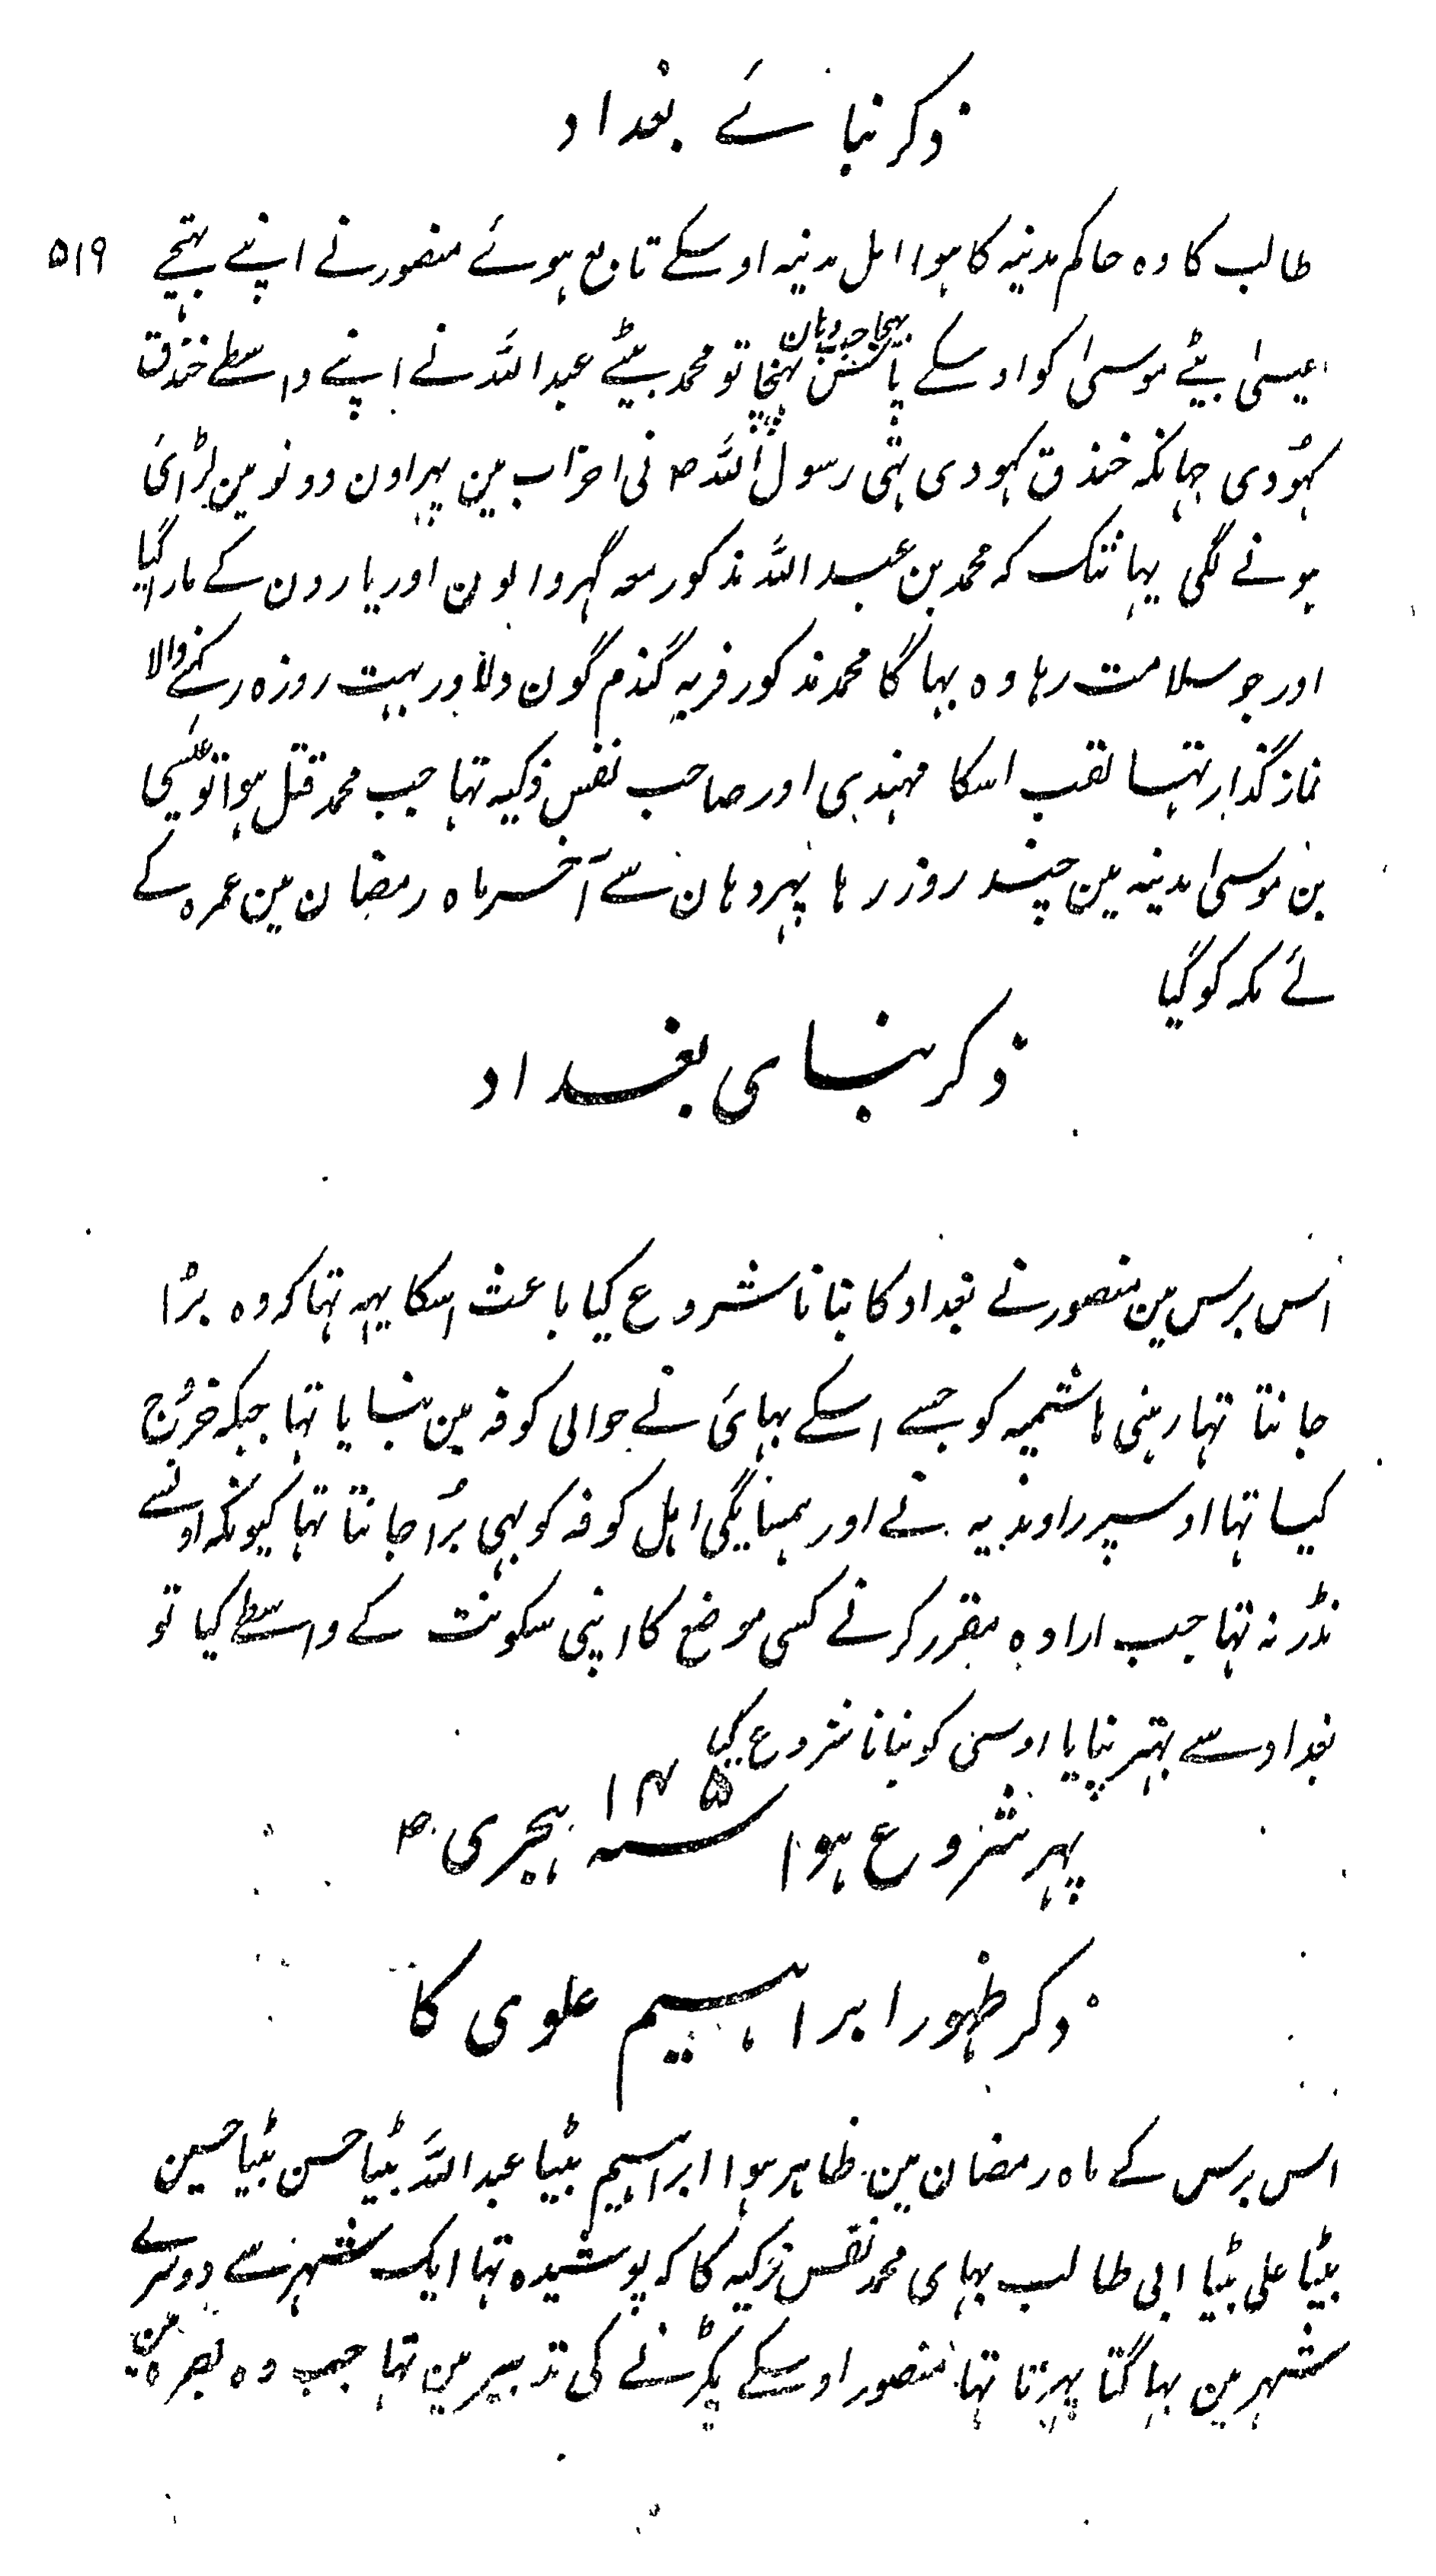 ذکر بنائے بغداد
۵۱۹
طالب کا وہ حاکم مدینہ کا ہوا اہل مدینہ اوسکے تابع ہوئے منصور نے اپنے بہتیجے
عیسیٰ بیٹے موسیٰ کو اوسکے پاس بہیجا جب وہان پہنچا تو محمد بیٹے عبد اللہ نے اپنے واسطے خندق
کہودی چنانکہ خندق کہودی تہی رسول اللہ ص نی احزاب مین پہر اون دونو مین لڑائی
ہونے لگی یہانتک کہ محمد بن عبد اللہ مذکور معہ گہروالون اور یارون کے مارا گیا
اور جو سلامت رہا وہ بہاگا محمد مذکور فربہ گندم گون دلاور بہت روزہ رکہنے والا
نماز گذار تہا لقب اسکا مہدی اور صاحب نفس زکیہ تہا جب محمد قتل ہوا تو عیسیٰ
بن موسیٰ مدینہ مین چند روز رہا پہر وہان سے آخر ماہ رمضان مین عمرہ کے
لئے مکہ کو گیا
ذکر بنای بغداد
اس برس مین منصور نے بغداد کا بنانا شروع کیا باعث اسکا یہہ تہا کہ وہ برا
جانتا تہا رہنی ہاشمیہ کو جسے اسکے بہائی نے حوالی کوفہ مین بنایا تہا جبکہ خروج
کیا تہا اوسپر راوندیہ نے اور ہمسایگی اہل کوفہ کو بہی برا جانتا تہا کیونکہ اونسے
نڈر نہ تہا جب ارادہ مقرر کرنے کسی موضع کا اپنی سکونت کے واسطے کیا تو
بغداد سے بہتر نپایا اوسی کو بنانا شروع کیا
پہر شروع ہوا سنہ ۱۴۵ ہجری ص
ذکر ظہور ابراہیم علوی کا
اس برس کے ماہ رمضان مین ظاہر ہوا ابراہیم بیٹیا عبد اللہ بیٹیا حسن بیٹیا حسین
بیٹا علی بیٹیا ابی طالب بہای محمد نفس زکیہ کا کہ پوشیدہ تہا ایک شہر سے دوسرے
شہر مین بہاگتا پہرتا تہا منصور اوسکے پکڑنے کی تدبیر مین تہا جب وہ بصرہ مین